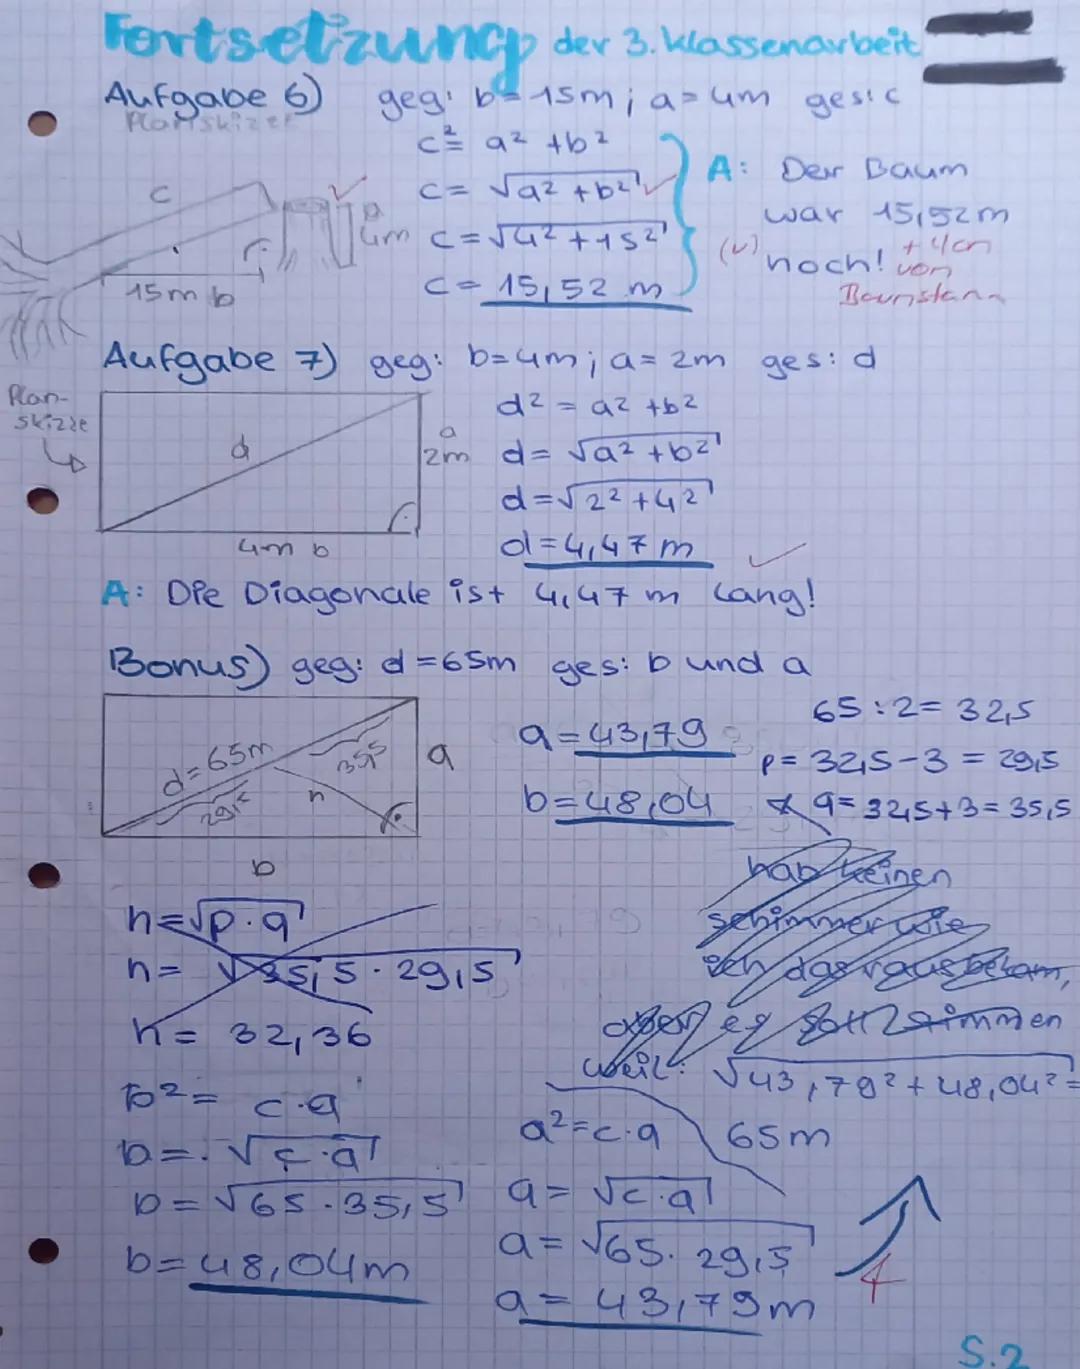 Fortsetzung der 3. Klassenarbeit
Aufgabe 6) geg: b=15m; a=4m ges: c
Planskizze
c
a
4m
15m b
c²= a²+b²
c= √a²+b²
c=√4²+15²
c= 15,52 m
A: Der Baum
war 15,52m
hoch!
(√)
+4cm
von
Baumstamm
Aufgabe 7) geg: b=4m; a=2m ges: d
Plan-
skizze
d
a
2m
4m b
d² = a²+b²
d= √a²+b²
d=√2²+4²
d=4,47 m
A: Die Diagonale ist 4,47 m lang!
Bonus) geg: d=65m ges: b und a
d=65m
35,5
29,5
h
a
b
a=43,79
b=48,04
65:2= 32,5
p= 32,5-3 = 29,5
q= 32,5+3= 35,5
hab keinen
schimmer wie
ich das rausbekam,
aber es soll stimmen
weil: √43,79²+48,04²=
65m
h=√p·q
h= √35,5·29,5
h= 32,36
b²= c·q
b= √c·q
b=√65·35,5
b=48,04m
a²=c·q
a= √c·q
a= √65·29,5
a= 43,79m
4
S.2